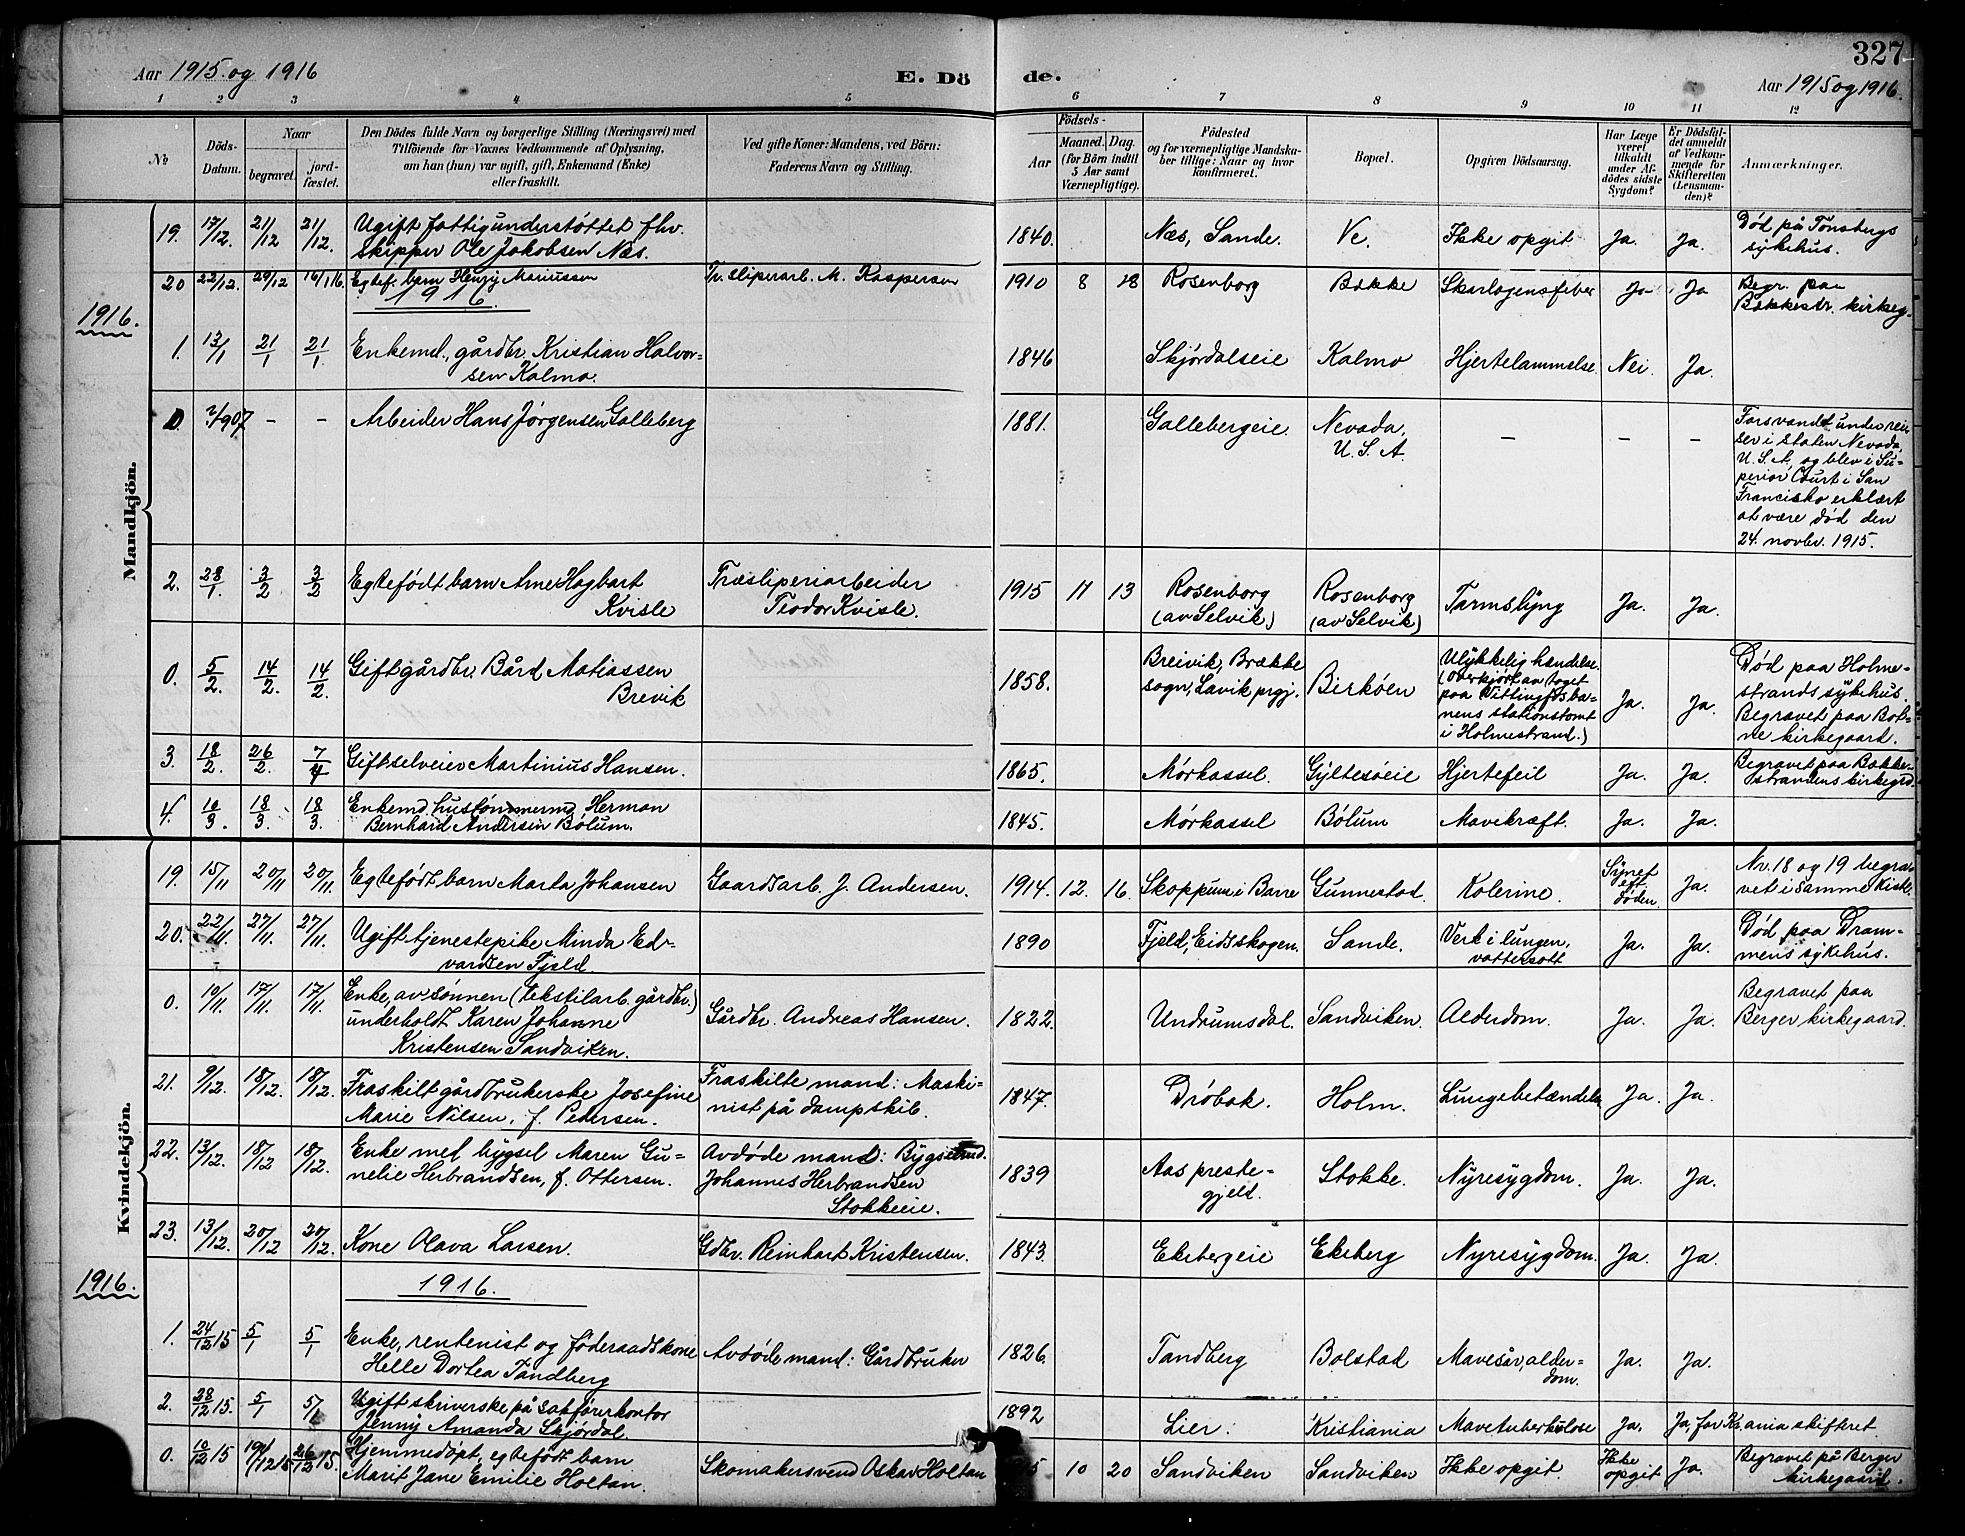 327
Aar 1915 og 1916
E. Dö
de.
Aar 1915 og 1916.
1 2 3 4 5 6 7 8 9 10 11 12
№
Döds-
Datum.
Naar
begravet.
jord-
fæstet.
Den Dödes fulde Navn og borgerlige Stilling (Næringsvei) med
Tilföiende for Voxnes Vedkommende af Oplysning,
om han (hun) var ugift, gift, Enkemand (Enke)
eller fraskilt.
Ved gifte Koner: Mandens, ved Börn:
Faderens Navn og Stilling.
Födsels-
Aar
Maaned. Dag.
(for Börn indtil
5 Aar samt
Værnepligtige).
Födested
og for værnepligtige Mandska-
ber tillige: Naar og hvor
konfirmeret.
Bopæl.
Opgiven Dödsaarsag.
Har Læge
været
tilkaldt
under Af-
dödes sidste
Sygdom?
Er Dödsfal-
det anmeldt
af Vedkom-
mende for
Skifteretten
(Lensman-
den)?
Anmærkninger.
Mandkjön.
19. 17/12. 21/12 21/12. Ugift fattigunderstøttet fhv.
Skipper Ole Jakobsen Næs.
1840. Næs, Sande. Ve. Ikke opgit Ja. Ja. Død på Tønsbergs
sykehus.
20 22/12. 29/12 16/1 16. Egtef. barn Henry Mariussen
Tr.sliperarb. M. Kaspersen
1910 8 28 Rosenborg Bække Skarlagensfeber Ja Ja Begr. paa
Bækkestr. kirkeg.
1916.
1916.
1. 13/1 21/1 21/1. Enkemd., gårdbr. Kristian Halvor-
sen Kalmo.
1846 Skjørdalseie Kalmo Hjertelammelse. Nei. Ja.
0. 2/4 907 – – Arbeider Hans Jørgensen Galleberg
1881. Gallebergeie. Nevada,
U. S. A. – – – Forsvandt under rei-
ser i staten Nevada,
U. S. A, og blev i Su-
perior Court i San
Francisko erklært
at være død den
24. novbr. 1915.
2. 28/1. 3/2 3/2 Egtefødt barn Arne Hagbart
Kvisle
Træsliperiarbeider
Teodor Kvisle.
1915 11 13 Rosenborg
(av Selvik) Rosenborg
(av Selvik) Tarmslyng Ja. Ja.
0. 5/2. 14/2. 14/2. Gift gårdbr. Bård Matiassen
Brevik
1858. Breivik, Brække
sogn, Lavik prgj. Birkøen Ulykkelig hændelse.
(Overkjørt av toget
paa Vittingfosba-
nens stationstomt
i Holmestrand.) Ja. Ja. Død paa Holme-
strands sykehus.
Begravet paa Bot-
ne kirkegaard.
3. 18/2. 26/2. 7/4 Gift selveier Martinius Hansen.
1865. Mørkassel. Gyltesøeie Hjertefeil Ja. Ja. Begravet paa Bække-
strandens kirkegrd.
4. 10/3. 18/3. 18/3. Enkemd. hustømmermd Herman
Bernhard Andersen Bolum.
1845. Mørkassel Bolum Mavekræft. Ja. Ja.
Kvindekjön.
19. 15/11 20/11 20/11. Egtefødt barn Marta Johansen Gaardsarb. J. Andersen.
1914. 12. 16. Skoppum i Borre Gunnestad. Kolerine. Synet
eft.
døden. Ja. Nr. 18 og 19 begra-
vet i samme kiste.
20. 22/11. 27/11. 27/11. Ugift tjenestepike Minda Ed-
vardsen Fjeld.
1890 Fjeld, Eidsskogen. Sande. Verk i lungen,
vattersott Ja. Ja. Død paa Dram-
mens sykehus.
0. 10/11 17/11. 17/11. Enke, av sønnen (tekstilarb. gårdbr.)
underholdt Karen Johanne
Kristensen Sandviken.
Gårdbr. Andreas Hansen.
1822. Undrumsdal. Sandviken. Alderdom. Ja. Ja. Begravet paa
Berger kirkegaard.
21. 9/12. 18/12. 18/12. Fraskilt gårdbrukerske Josefine
Marie Nilsen, f. Petersen.
Fraskilte mand: Maski-
nist på dampskib.
1847. Drøbak. Holm. Lungebetændelse Ja. Ja.
22. 13/12. 18/12 18/12. Enke med bygsel Maren Gu-
nelie Herbrandsen, f. Ottersen.
Avdøde mand: Bygselmd.
Johannes Herbrandsen
Stokkeeie.
1839 Aas preste-
gjeld. Stokke. Nyresygdom. Ja. Ja.
23. 13/12. 20/12 20/12. Kone Olava Larsen. Gdbr. Reinhart Kristensen.
1843. Ekebergeie Ekeberg Nyresygdom. Ja. Ja.
1916.
1916.
1. 24/12 15 5/1 5/1 Enke, rentenist og føderaadskone
Helle Dortea Tandberg
Avdøde mand: Gårdbruker
1826. Tandberg Bolstad Mavesår, alder-
dom. Ja. Ja.
2. 28/12 15. 5/1 5/1 Ugift skriverske på sakførerkontor
Jenny Amanda Skjørdal.
1892 Lier. Kristiania Mavetuberkulose Ja. Ja, for Kr.ania skifteret
0. 10/12 15 19/12 15 26/12 15. Hjemmedøpt, egtefødt barn
Marit Jane Emilie Holtan.
Skomakersvend Oskar Holtan
10 20 Sandviken Sandviken Ikke opgit. Ikke
opgit Ja. Begravet på Berger
kirkegaard.